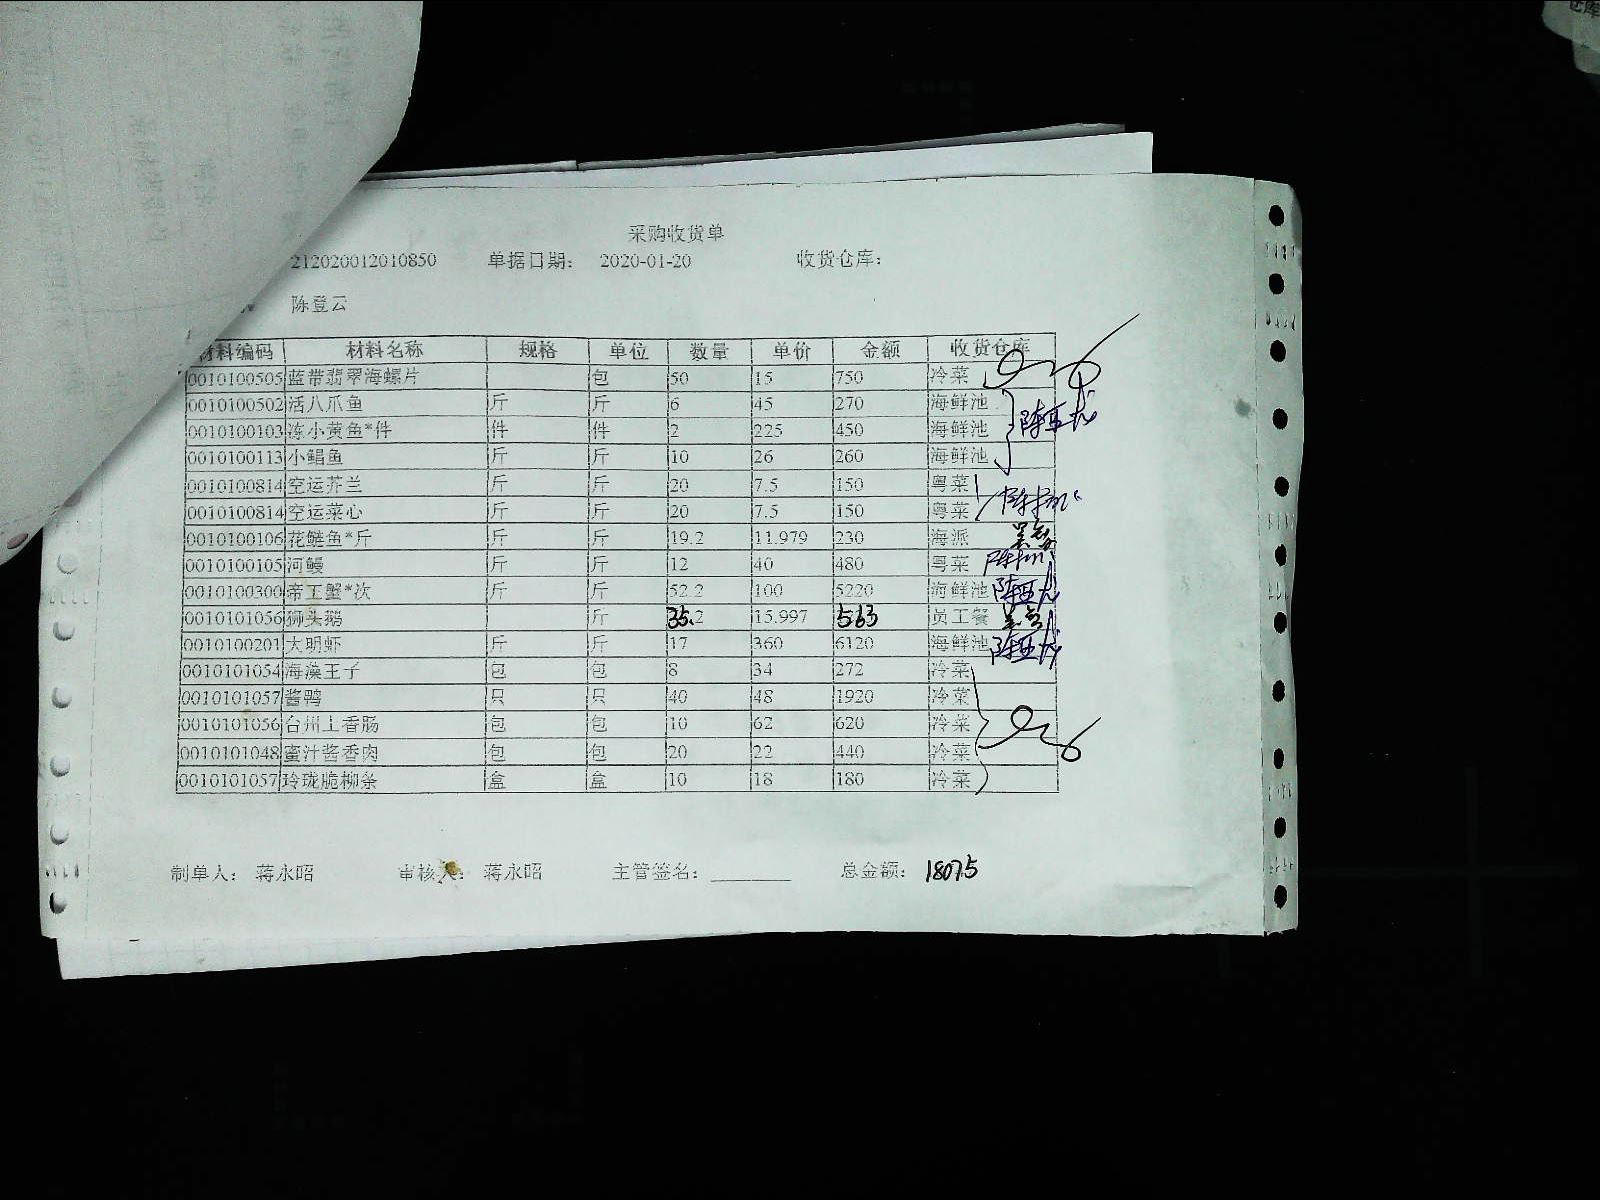 采购收货单
212020012010850 单据日期： 2020-01-20 收货仓库：
陈登云
材料编码 材料名称 规格 单位 数量 单价 金额 收货仓库
0010100505 蓝带翡翠海螺片 包 50 15 750 冷菜
0010100502 活八爪鱼 斤 斤 6 45 270 海鲜池
0010100103 冻小黄鱼*件 件 件 2 225 450 海鲜池
0010100113 小鲳鱼 斤 斤 10 26 260 海鲜池
0010100814 空运芥兰 斤 斤 20 7.5 150 粤菜
0010100814 空运菜心 斤 斤 20 7.5 150 粤菜
0010100106 花鲢鱼*斤 斤 斤 19.2 11.979 230 海派
0010100105 河鳗 斤 斤 12 40 480 粤菜
0010100300 帝王蟹*次 斤 斤 52.2 100 5220 海鲜池
0010101056 狮头鹅 斤 35.2 15.997 563 员工餐
0010100201 大明虾 斤 斤 17 360 6120 海鲜池
0010101054 海藻王子 包 包 8 34 272 冷菜
0010101057 酱鸭 只 只 40 48 1920 冷菜
0010101056 台州上香肠 包 包 10 62 620 冷菜
0010101048 蜜汁酱香肉 包 包 20 22 440 冷菜
0010101057 玲珑脆柳条 盒 盒 10 18 180 冷菜
制单人： 蒋永昭 审核人： 蒋永昭 主管签名： 总金额： 18075